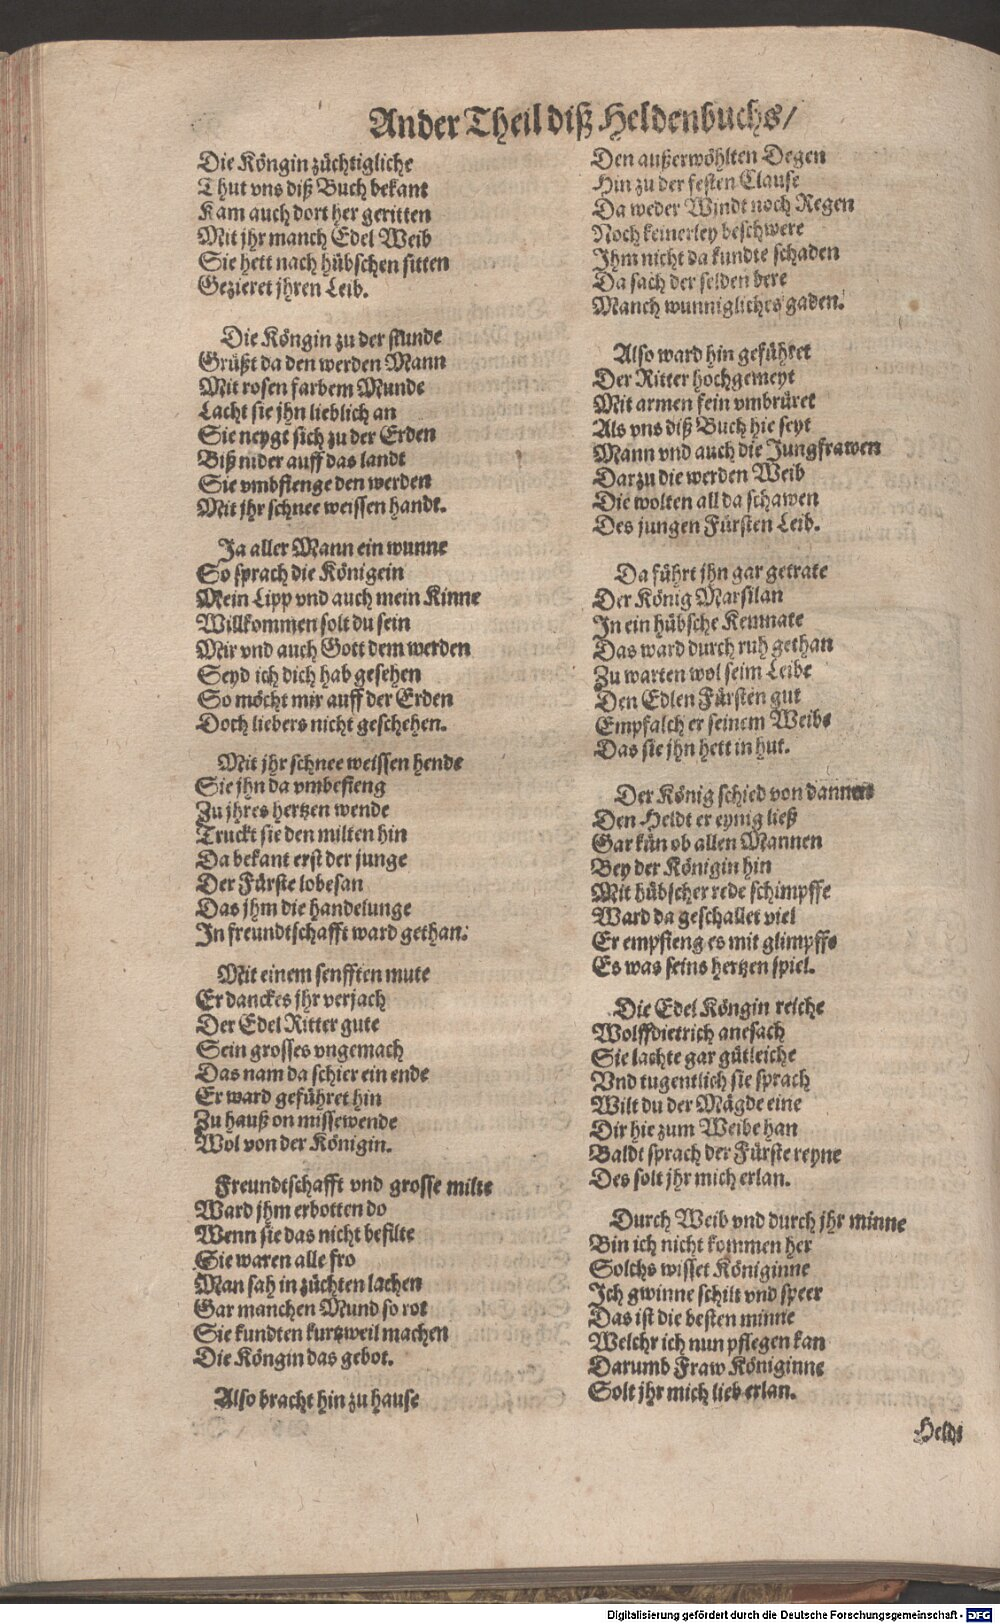 Ander Theil diß Heldenbuchs/
Die Köngin züchtigliche
Thut vns diß Buch bekant
Kam auch dort her geritten
Mit jhr manch Edel Weib
Sie hett nach hübschen sitten
Gezieret jhren Leib.
Die Köngin zu der stunde
Grüßt da den werden Mann
Mit rosen farbem Munde
Lacht sie jhn lieblich an
Sie neygt sich zu der Erden
Biß nider auff das landt
Sie vmbfienge den werden
Mit jhr schnee weissen handt.
Ja aller Mann ein wunne
So sprach die Königein
Mein Lipp vnd auch mein Kinne
Willkommen solt du sein
Mir vnd auch Gott dem werden
Seyd ich dich hab gesehen
So möcht mir auff der Erden
Doch liebers nicht geschehen.
Mit jhr schnee weissen hende
Sie jhn da vmbefieng
Zu jhres hertzen wende
Truckt sie den milten hin
Da bekant erst der junge
Der Fürste lobesan
Das jhm die handelunge
In freundtschafft ward gethan.
Mit einem senfften mute
Er danckes jhr verjach
Der Edel Ritter gute
Sein grosses vngemach
Das nam da schier ein ende
Er ward geführet hin
Zu hauß on missewende
Wol von der Königin.
Freundtschafft vnd grosse milte
Ward jhm erbotten do
Wenn sie das nicht befilte
Sie waren alle fro
Man sah in züchten lachen
Gar manchen Mund so rot
Sie kundten kurtzweil machen
Die Köngin das gebot.
Also bracht hin zu hause
Den außerwöhlten Degen
Hin zu der festen Clause
Da weder Windt noch Regen
Noch keinerley beschwere
Ihm nicht da kundte schaden
Da sach der selden bere
Manch wunnigliches gaden.
Also ward hin geführet
Der Ritter hochgemeyt
Mit armen fein vmbrüret
Als vns diß Buch hie seyt
Mann vnd auch die Jungfrawen
Darzu die werden Weib
Die wolten all da schawen
Des jungen Fürsten Leib.
Da führt jhn gar getrate
Der König Marsilan
In ein hübsche Kemnate
Das ward durch ruh gethan
Zu warten wol seim Leibe
Den Edlen Fürsten gut
Empfalch er seinem Weibe
Das sie jhn hett in hut.
Der König schied von dannen
Den Heldt er eynig ließ
Gar kün ob allen Mannen
Bey der Königin hin
Mit hübscher rede schimpffe
Ward da geschallet viel
Er empfieng es mit glimpffe
Es was seins hertzen spiel.
Die Edel Köngin reiche
Wolffdietrich anesach
Sie lachte gar gütleiche
Vnd tugentlich sie sprach
Wilt du der Mägde eine
Dir hie zum Weibe han
Baldt sprach der Fürste reyne
Des solt jhr mich erlan.
Durch Weib vnd durch jhr minne
Bin ich nicht kommen her
Solchs wisset Königinne
Ich gwinne schilt vnd speer
Das ist die besten minne
Welchr ich nun pflegen kan
Darumb Fraw Königinne
Solt jhr mich lieb erlan.
Heldt
Digitalisierung gefördert durch die Deutsche Forschungsgemeinschaft - DFG